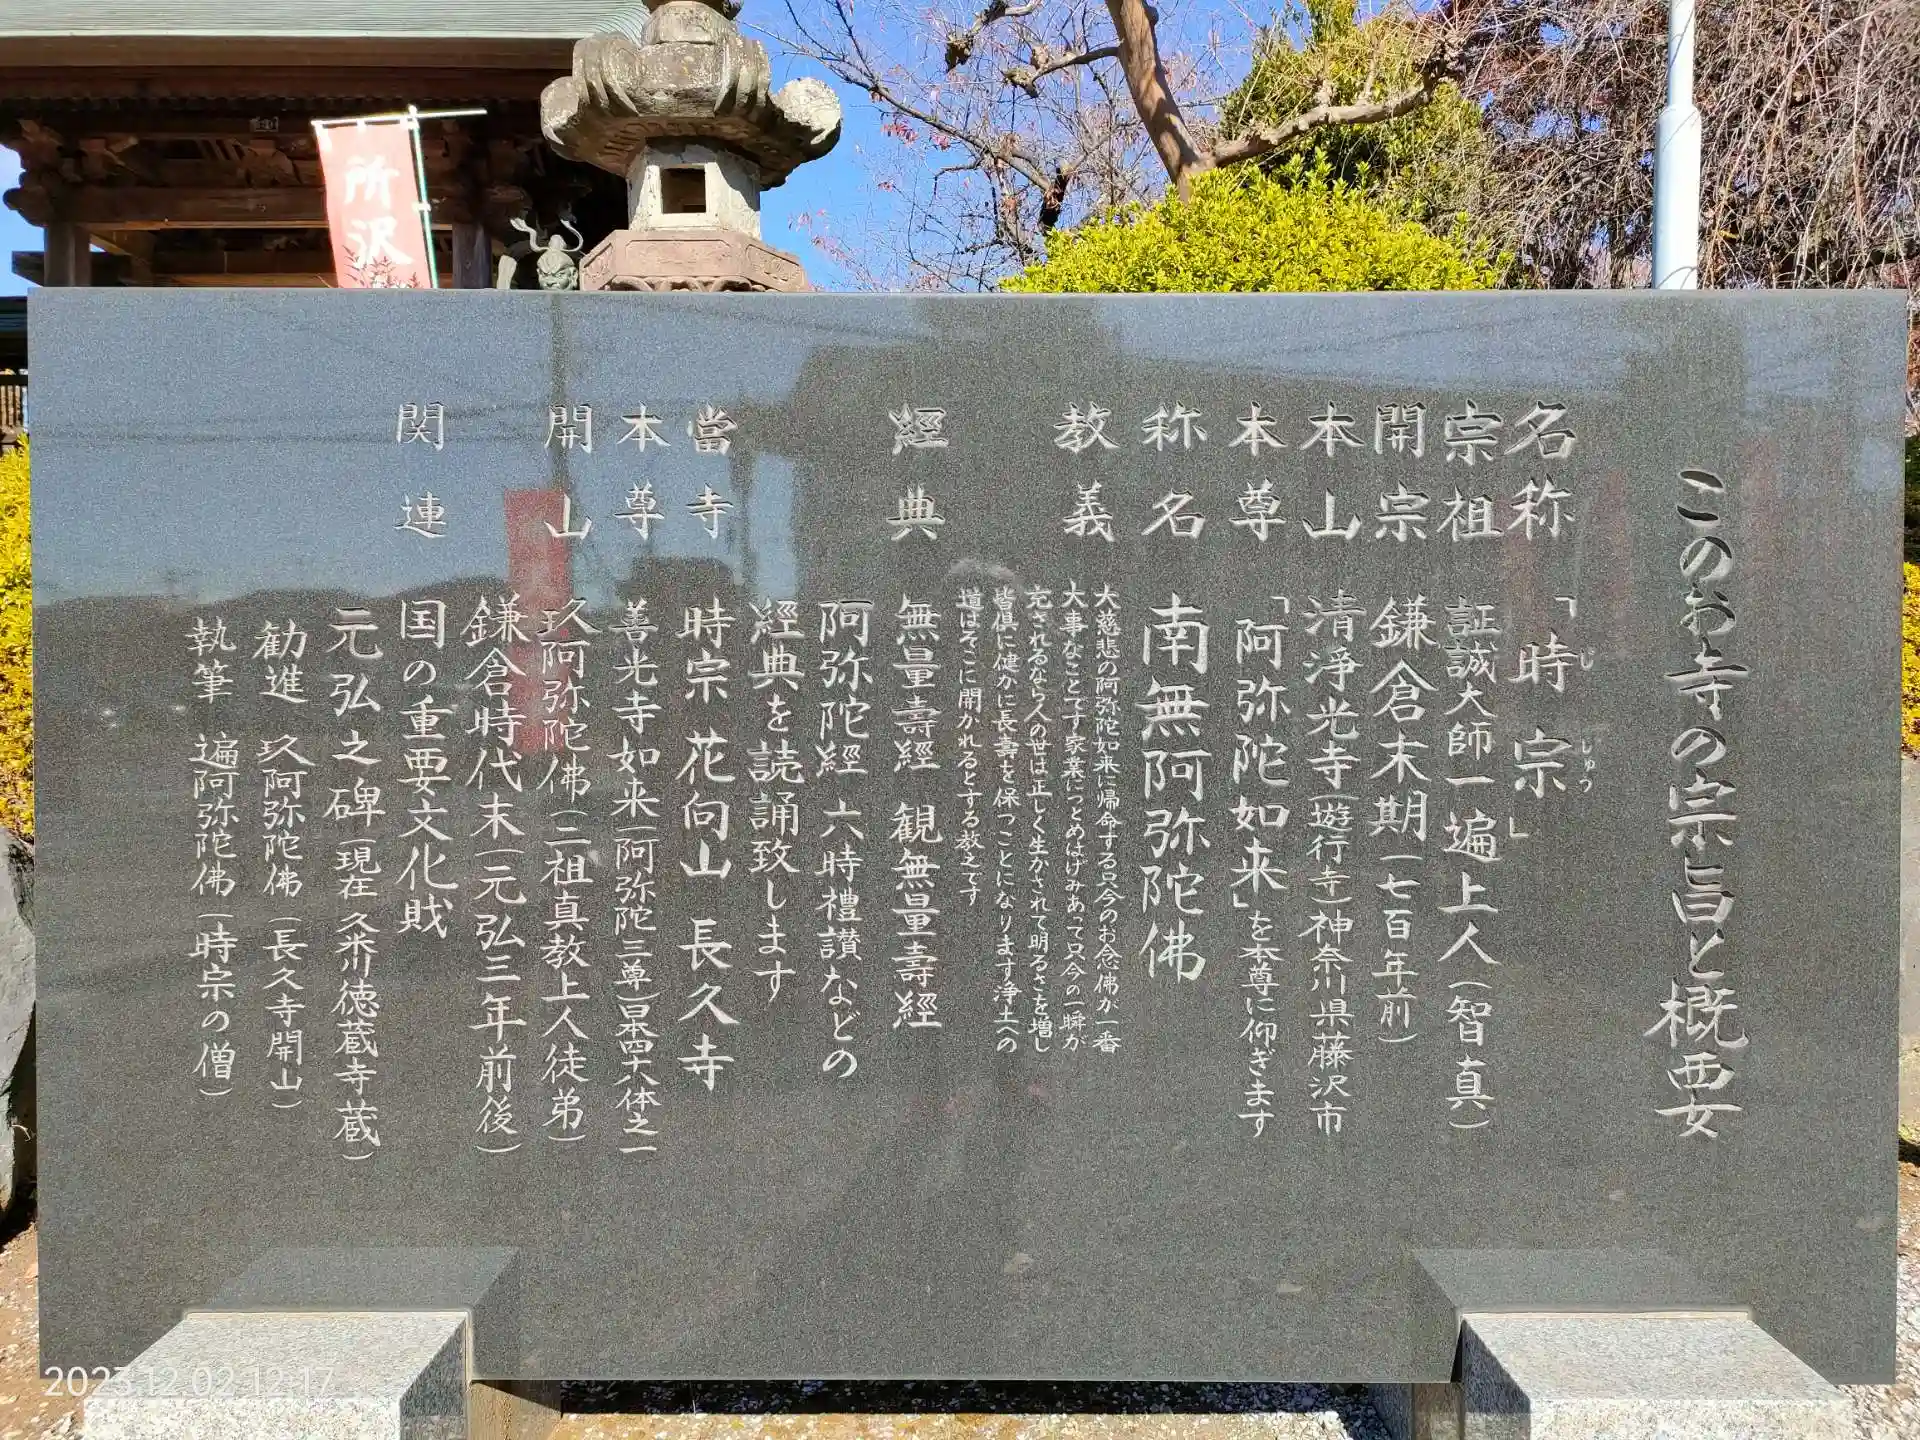 このお寺の宗旨と概要
名称 「時宗」
じ しゅう
宗祖 証誠大師一遍上人(智真)
開宗 鎌倉末期(七百年前)
本山 清浄光寺(遊行寺)神奈川県藤沢市
本尊 「阿弥陀如来」を本尊に仰ぎます
称名 南無阿弥陀佛
教義 大慈悲の阿弥陀如来に帰命する只今のお念佛が一番
大事なことです家業につとめはげみあって只今の一瞬が
充されるなら人の世は正しく生かされて明るさを増し
皆倶に健かに長壽を保つことになります浄土への
道はそこに開かれるとする教えです
經典 無量壽經 観無量壽經
阿弥陀經 六時禮讃などの
經典を読誦致します
當寺 時宗 花向山 長久寺
本尊 善光寺如来(阿弥陀三尊)日本四十八体之一
開山 玖阿弥陀佛(二祖真教上人徒弟)
鎌倉時代末(元弘三年前後)
関連 国の重要文化財
元弘之碑(現在 久米川徳蔵寺蔵)
勧進 玖阿弥陀佛(長久寺開山)
執筆 遍阿弥陀佛(時宗の僧)
所沢
2023.12.02 12:17